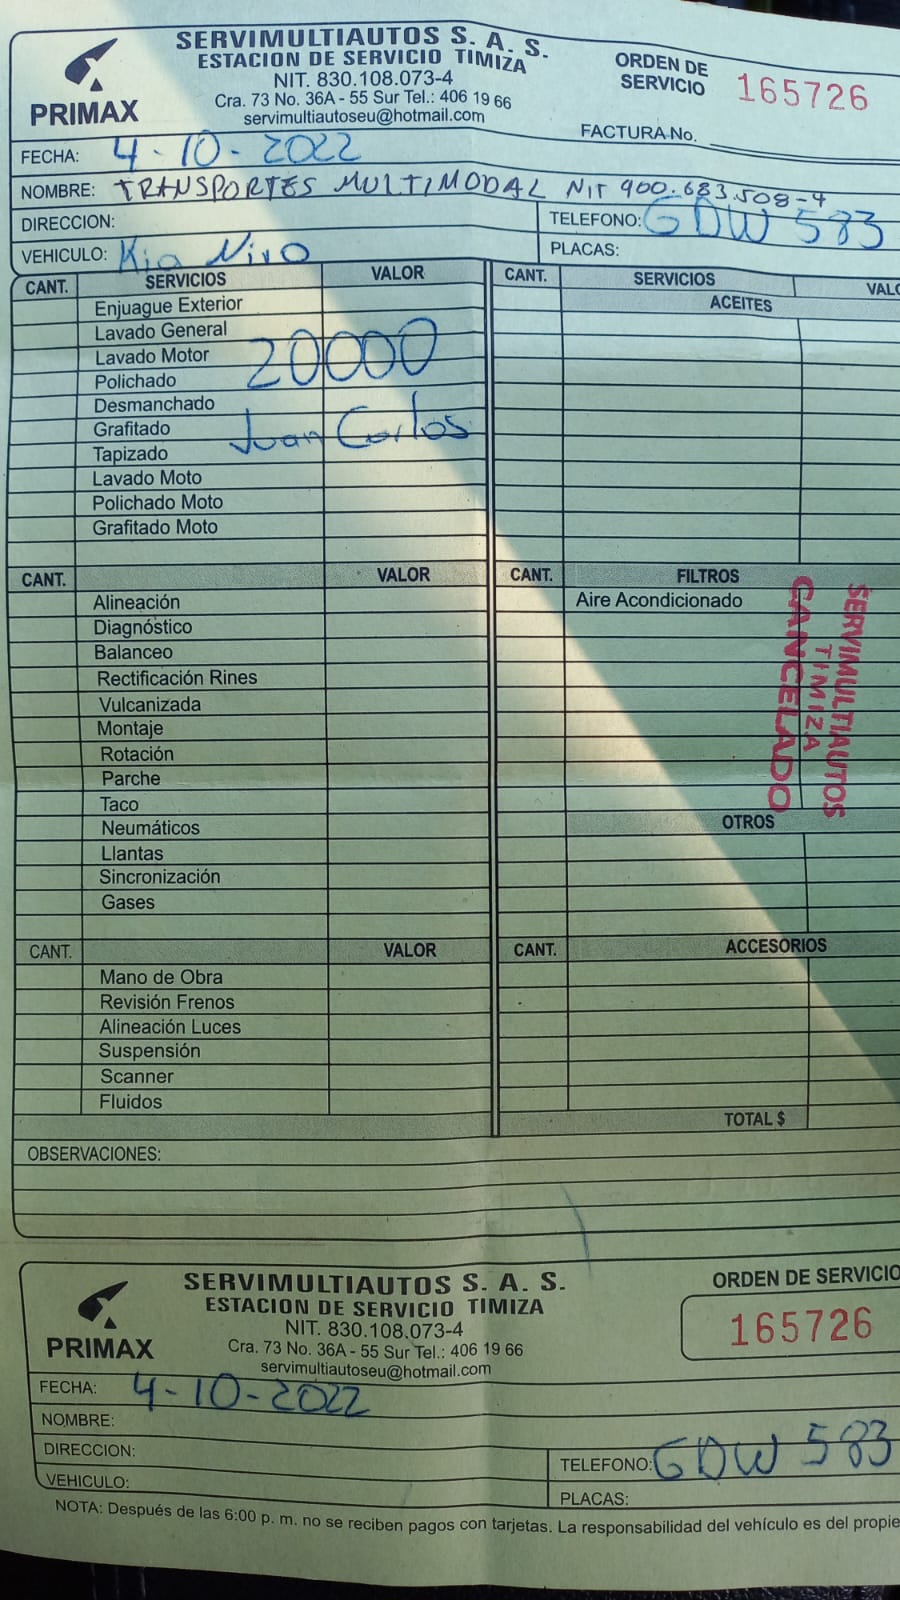 PRIMAX
SERVIMULTIAUTOS S. A. S.
ESTACION DE SERVICIO TIMIZA
NIT. 830.108.073-4
Cra. 73 No. 36A - 55 Sur Tel.: 406 19 66
servimultiautoseu@hotmail.com
ORDEN DE
SERVICIO
165726
FACTURA No.
FECHA: 4-10-2022
NOMBRE: TRANSPORTES MULTIMODAL NIT 900.683.508-4
DIRECCION:
TELEFONO: GDW 583
VEHICULO: Kia Niro
PLACAS:
CANT. SERVICIOS VALOR
Enjuague Exterior
Lavado General
Lavado Motor
20000
Polichado
Desmanchado
Grafitado
Juan Carlos
Tapizado
Lavado Moto
Polichado Moto
Grafitado Moto
CANT. SERVICIOS
ACEITES
CANT. VALOR
Alineación
Diagnóstico
Balanceo
Rectificación Rines
Vulcanizada
Montaje
Rotación
Parche
Taco
Neumáticos
Llantas
Sincronización
Gases
CANT. FILTROS
Aire Acondicionado
SERVIMULTIAUTOS
TIMIZA
CANCELADO
OTROS
CANT. VALOR
Mano de Obra
Revisión Frenos
Alineación Luces
Suspensión
Scanner
Fluidos
CANT. ACCESORIOS
TOTAL $
OBSERVACIONES:
PRIMAX
SERVIMULTIAUTOS S. A. S.
ESTACION DE SERVICIO TIMIZA
NIT. 830.108.073-4
Cra. 73 No. 36A - 55 Sur Tel.: 406 19 66
servimultiautoseu@hotmail.com
ORDEN DE SERVICIO
165726
FECHA: 4-10-2022
NOMBRE:
DIRECCION:
TELEFONO: GDW 583
VEHICULO:
PLACAS:
NOTA: Después de las 6:00 p. m. no se reciben pagos con tarjetas. La responsabilidad del vehículo es del